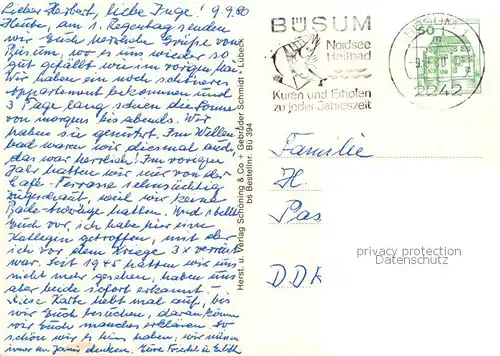 Lieber Herbert, liebe Inge! 9.9.80
Heute, am 1. Regentag senden
wir Euch herzliche Grüße von
Büsum, wo es uns wieder so
gut gefällt wie im vorigen Jahr.
Wir haben ein noch schöneres
Appartement bekommen und
3 Tage lang schien die Sonne
von morgens bis abends. Wir
haben sie genutzt. Im Wellen-
bad waren wir diesmal auch,
das war herrlich! Im vorigen
Jahr hatten wir nur von der
Café-Terrasse sehnsüchtig
zugeschaut, weil wir keine
Bade-anzüge hatten. Und stellt
Euch vor, ich habe hier eine
Kollegin getroffen, mit der
ich vor dem Kriege 3 x verreist
war. Seit 1945 hatten wir uns
nicht mehr gesehen, haben uns
aber beide sofort erkannt. -
Diese Karte hebt mal auf, bis
wir Euch besuchen, daran können
wir Euch manches erklären. So
schön wir es hier haben, wir müssen
immer an denken. Eure Friedel u. Edith
Herst. u. Verlag Schöning & Co. + Gebrüder Schmidt • Lübeck
bs Bestellnr. Bü 394
BÜSUM
Nordsee
Heilbad
Kuren und Erholen
zu jeder Jahreszeit
BÜSUM
50
-9.9.80
2242
Familie
H.
Pas
DDR
privacy protection
Datenschutz